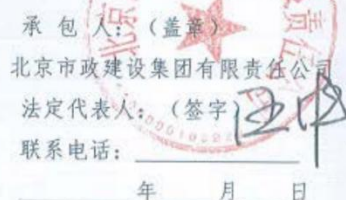 承 包 人：（盖章）
北京市政建设集团有限责任公司
法定代表人：（签字）
联系电话：
年 月 日